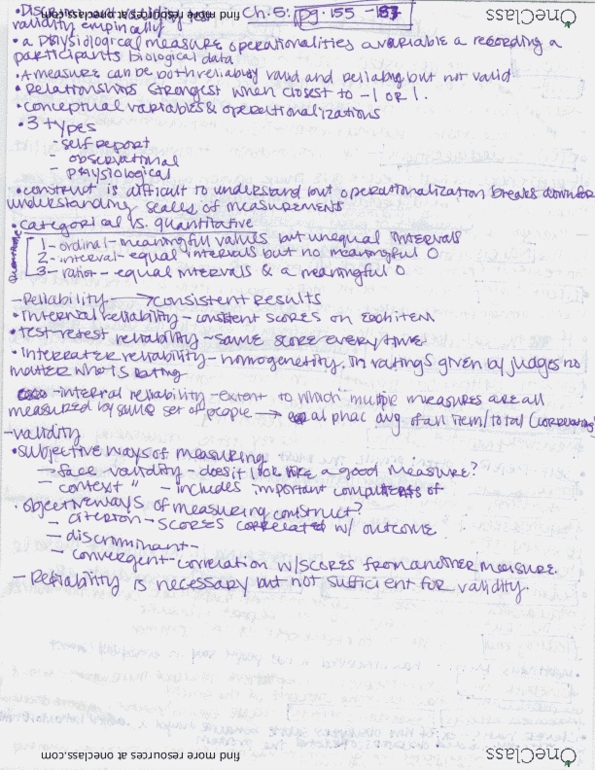 find more resources at oneclass.com
OneClass
Ch. 5: pg. 155 - 187
validity empirically
• a physiological measure operationalities a variable a recording a
participants biological data
• A measure can be both reliably valid and reliably but not valid
• Relationships strongest when closest to -1 or 1.
• conceptual variables & operationalizations
• 3 types
- self report
- observational
- physiological
• construct is difficult to understand but operationalization breaks down for
understanding scales of measurements
• categorical vs. quantitative
Quantitative
1- ordinal - meaningful values but unequal intervals
2- interval - equal intervals but no meaningful 0
3- ration - equal intervals & a meaningful 0
- Reliability → consistent results
• Internal reliability - consistent scores on each item
• test-retest reliability - same score everytime
• Interrater reliability - homogeneity. in ratings given by judges no
matter who is rating
- internal reliability - extent to which multiple measures are all
measured by same set of people → avg of an item/total
- validity
• subjective ways of measuring
- face validity - does it look like a good measure?
- context " - includes important of
• objective ways of measuring construct?
- criterion - scores correlated w/ outcome
- discriminant -
- convergent - correlation w/scores from another measure.
- Reliability is necessary but not sufficient for validity.
find more resources at oneclass.com
OneClass